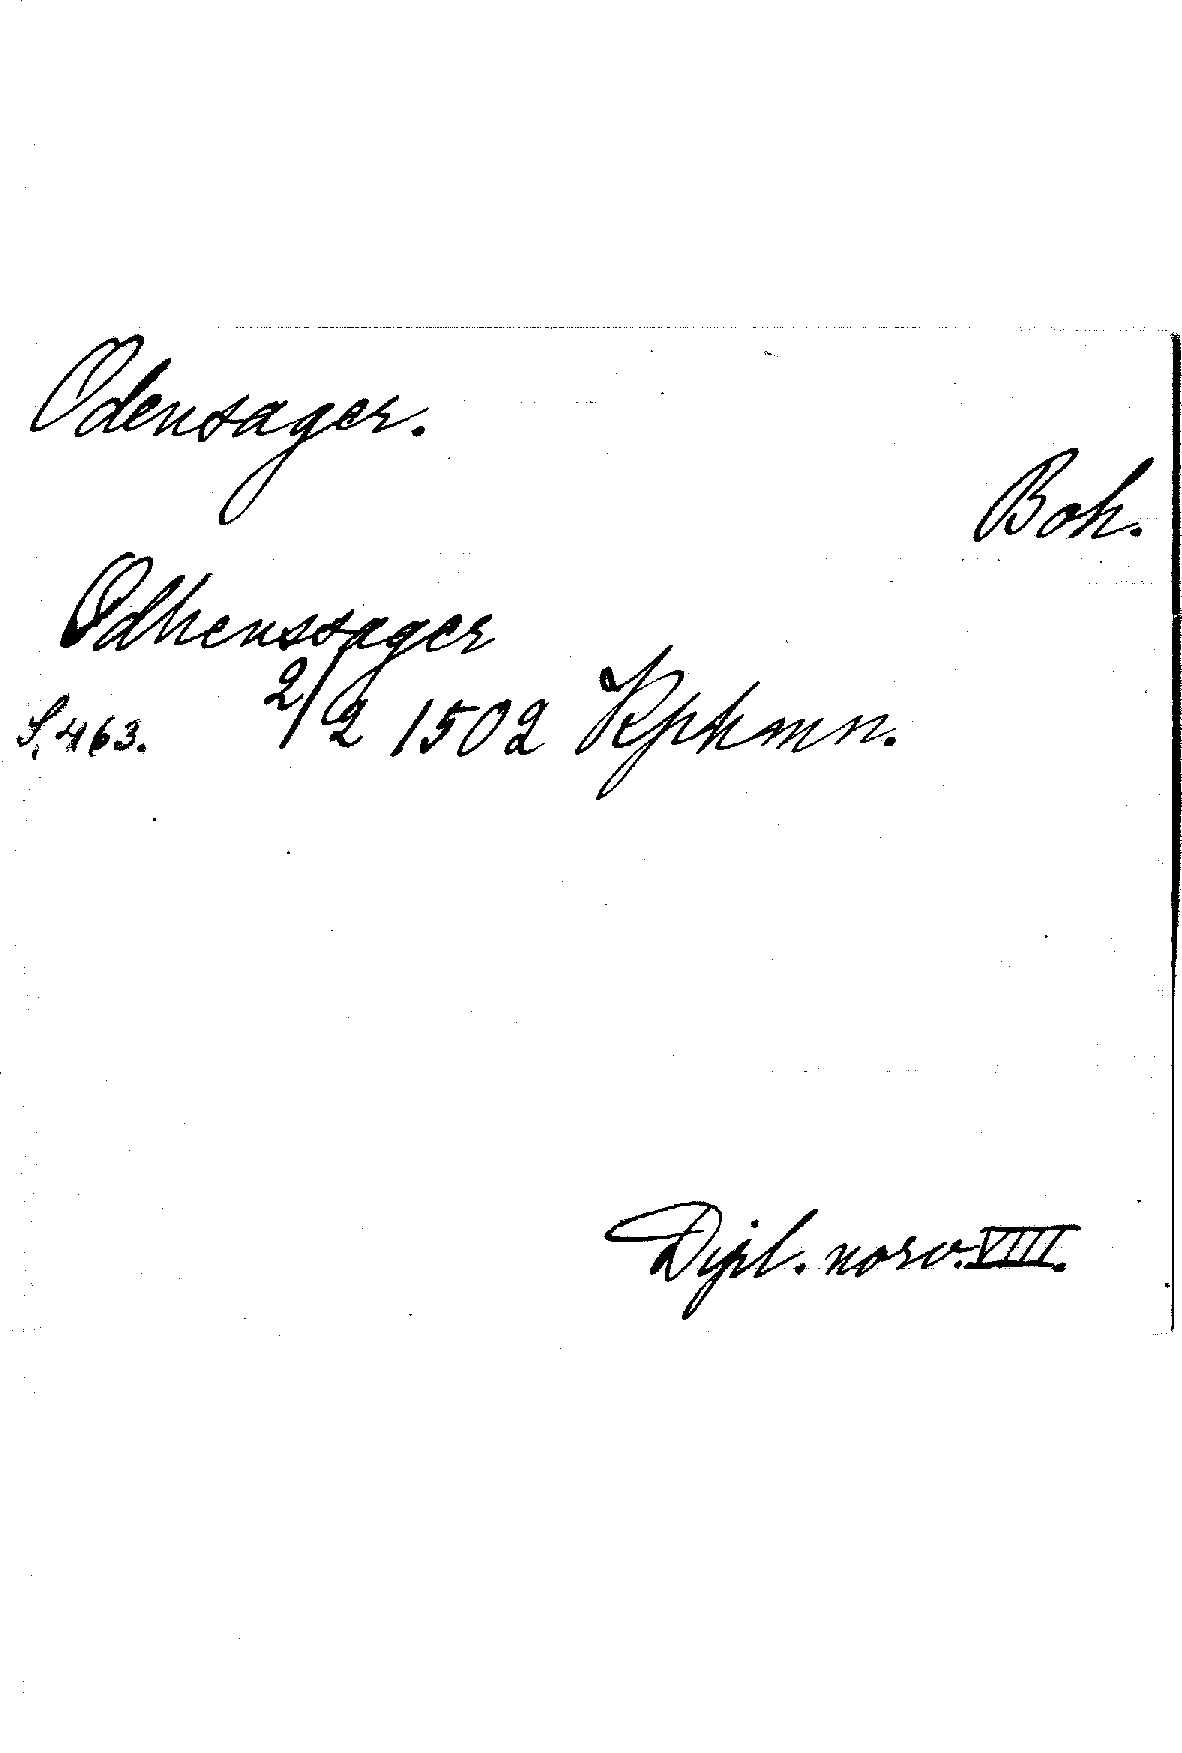 Odensager.
Boh.
Odhenssager
S. 463. 2/2 1502 Kphmn.
Dipl. norv. VIII.